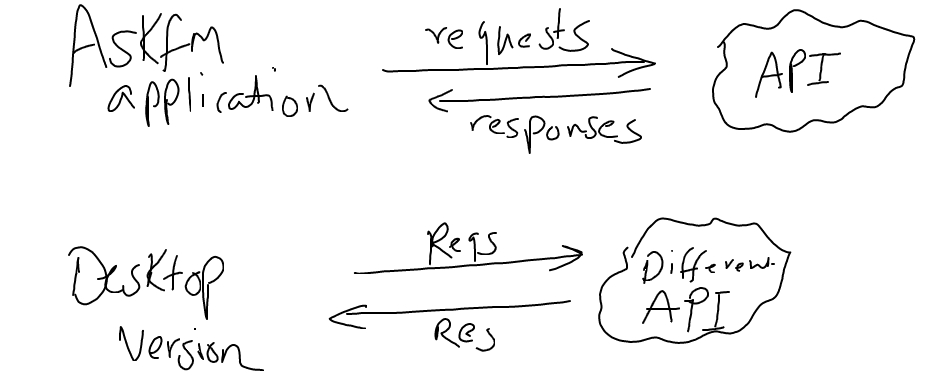 Askfm
application
requests
responses
API
Desktop
Version
Reqs
Res
Different
API